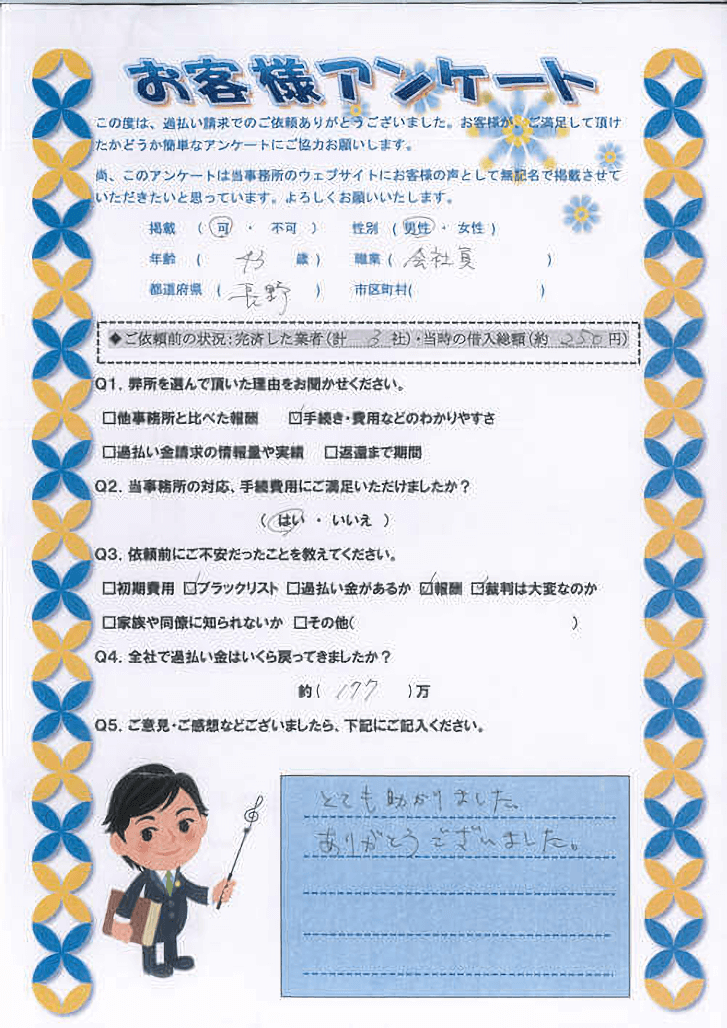 お客様アンケート
この度は、過払い請求でのご依頼ありがとうございました。お客様が、ご満足して頂け
たかどうか簡単なアンケートにご協力お願いします。
尚、このアンケートは当事務所のウェブサイトにお客様の声として無記名で掲載させて
いただきたいと思っています。よろしくお願いいたします。
掲載 (可・不可) 性別 (男性・女性)
年齢 (43歳) 職業 (会社員)
都道府県 (長野) 市区町村( )
◆ご依頼前の状況:完済した業者(計 3 社)・当時の借入総額(約 250 円)
Q1. 弊所を選んで頂いた理由をお聞かせください。
□他事務所と比べた報酬 ☑手続き・費用などのわかりやすさ
□過払い金請求の情報量や実績 □返還まで期間
Q2. 当事務所の対応、手続費用にご満足いただけましたか?
(はい・いいえ)
Q3. 依頼前にご不安だったことを教えてください。
□初期費用 ☑ブラックリスト □過払い金があるか ☑報酬 ☑裁判は大変なのか
□家族や同僚に知られないか □その他( )
Q4. 全社で過払い金はいくら戻ってきましたか?
約( 177 )万
Q5. ご意見・ご感想などございましたら、下記にご記入ください。
とても助かりました。
ありがとうございました。